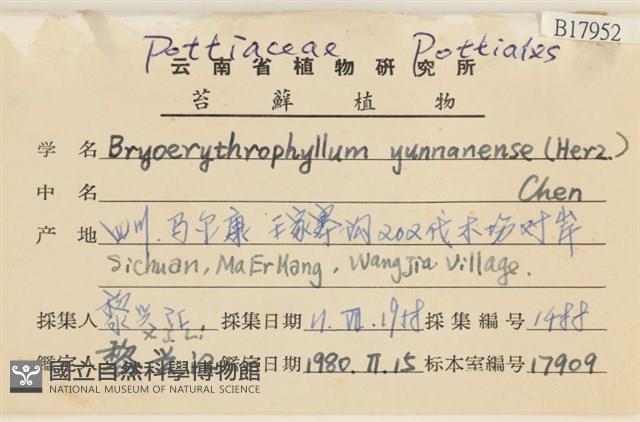 B17952
Pottiaceae Pottiales
云南省植物研究所
苔蘚植物
学名 Bryoerythrophyllum yunnanense (Herz.)
中名 Chen
产地 四川.马尔康 王家寨沟202伐木场对岸
Sichuan, MaErKang, Wangjia Village.
採集人 黎兴江 採集日期 採集編号
X.J.Li
鑑定人 黎兴江 鑑定日期 1980.II.15 标本室編号 17909
國立自然科學博物館
NATIONAL MUSEUM OF NATURAL SCIENCE